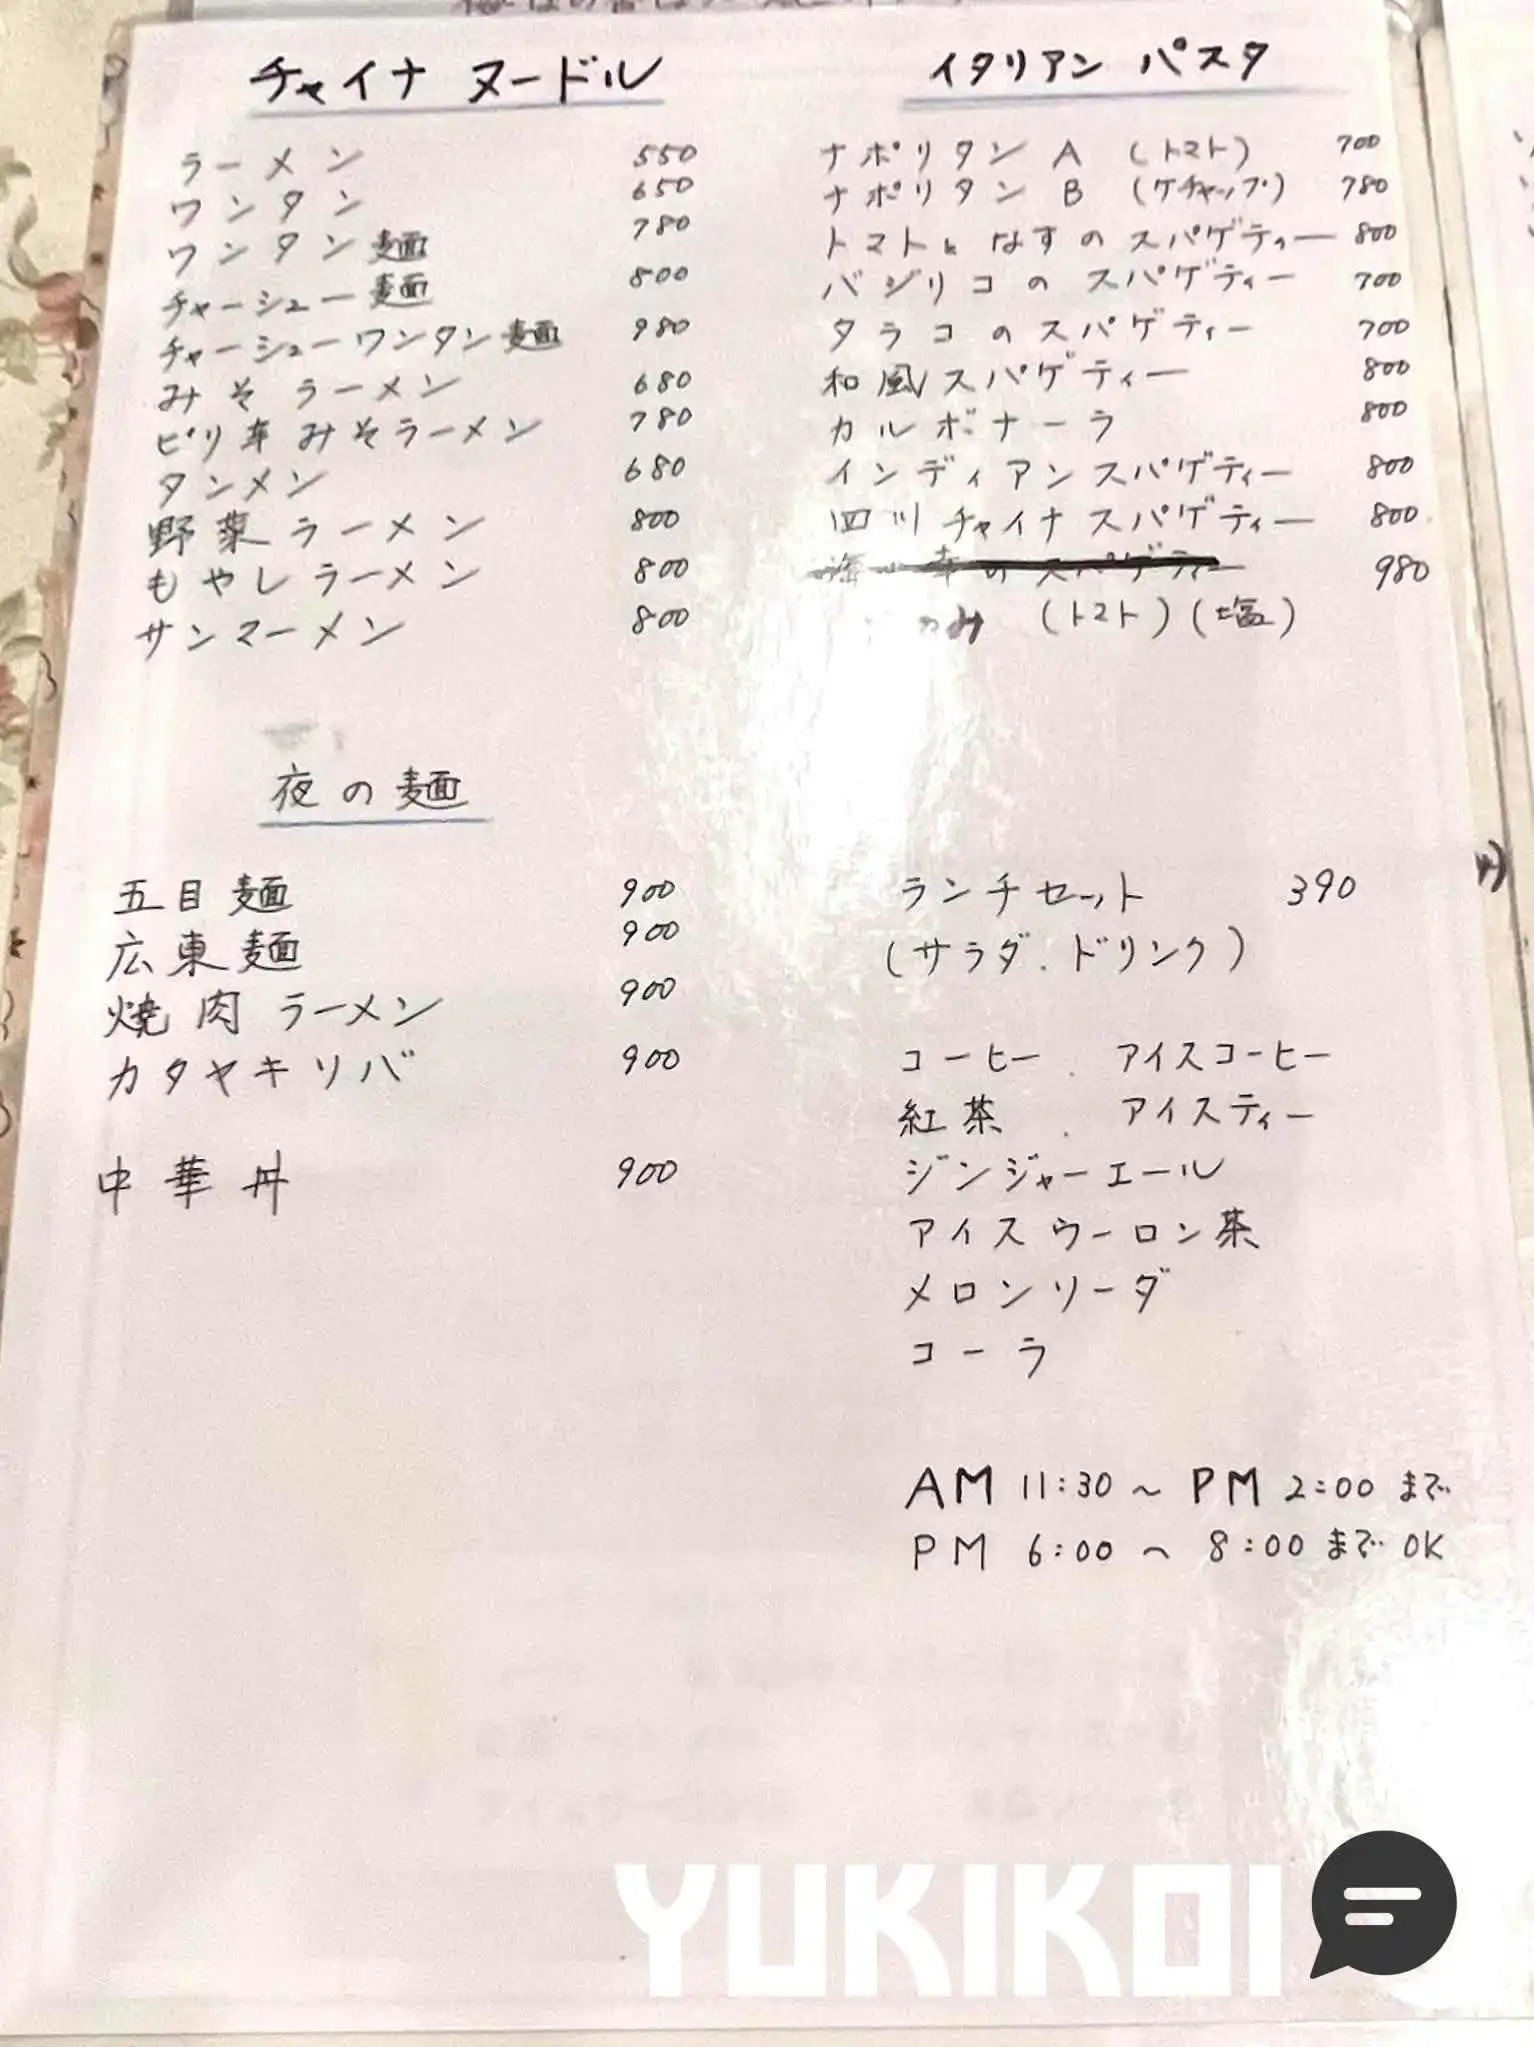 チャイナ ヌードル
ラーメン 550
ワンタン 650
ワンタン麺 780
チャーシュー麺 800
チャーシューワンタン麺 980
みそラーメン 680
ピリ辛みそラーメン 780
タンメン 680
野菜ラーメン 800
もやしラーメン 800
サンマーメン 800
夜の麺
五目麺 900
広東麺 900
焼肉ラーメン 900
カタヤキソバ 900
中華丼 900
イタリアン パスタ
ナポリタン A (トマト) 700
ナポリタン B (ケチャップ) 780
トマトとなすのスパゲティー 800
バジリコのスパゲティー 700
タラコのスパゲティー 700
和風スパゲティー 800
カルボナーラ 800
インディアンスパゲティー 800
四川チャイナスパゲティー 800
海の幸のスパゲティー 980
のみ (トマト)(塩)
ランチセット 390
(サラダ.ドリンク)
コーヒー . アイスコーヒー
紅茶 . アイスティー
ジンジャーエール
アイスウーロン茶
メロンソーダ
コーラ
AM 11:30 ~ PM 2:00 まで
PM 6:00 ~ 8:00 まで OK
YUKIKOI